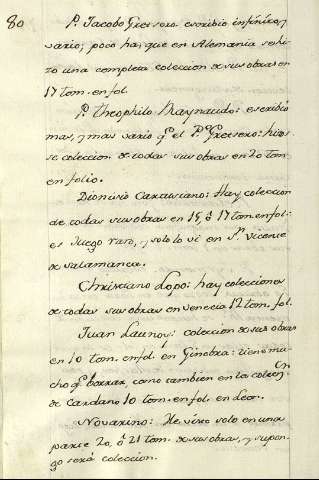 80
P. Jacobo Gressero escribio infinito, y
vario; poco ha, que en Alemania se hi-
zo una completa coleccion de sus obras en
17 tom. en fol.
P. Theophilo Raynaudo: escribio
mas, y mas vario q.e el P. Gressero: hizo
se coleccion de todas sus obras en 20 tom.
en folio.
Dionisio Cartusiano: Hay coleccion
de todas sus obras en 15, ó 17 tom. en fol.:
es Juego raro, y solo lo vi en S.n Vicente
de Salamanca.
Christiano Lopo: hay colecciones
de todas sus obras en Venecia 12 tom. fol.
Juan Launoy: coleccion de sus obras
en 10 tom. en fol. en Ginebra: tiene mu-
cho q.e borrar, como tambien en la colec.on
de Cardano 10 tom. en fol. en Leon.
Novarino: He visto solo en una
parte 20, ó 21 tom. de sus obras, y supon-
go será coleccion.